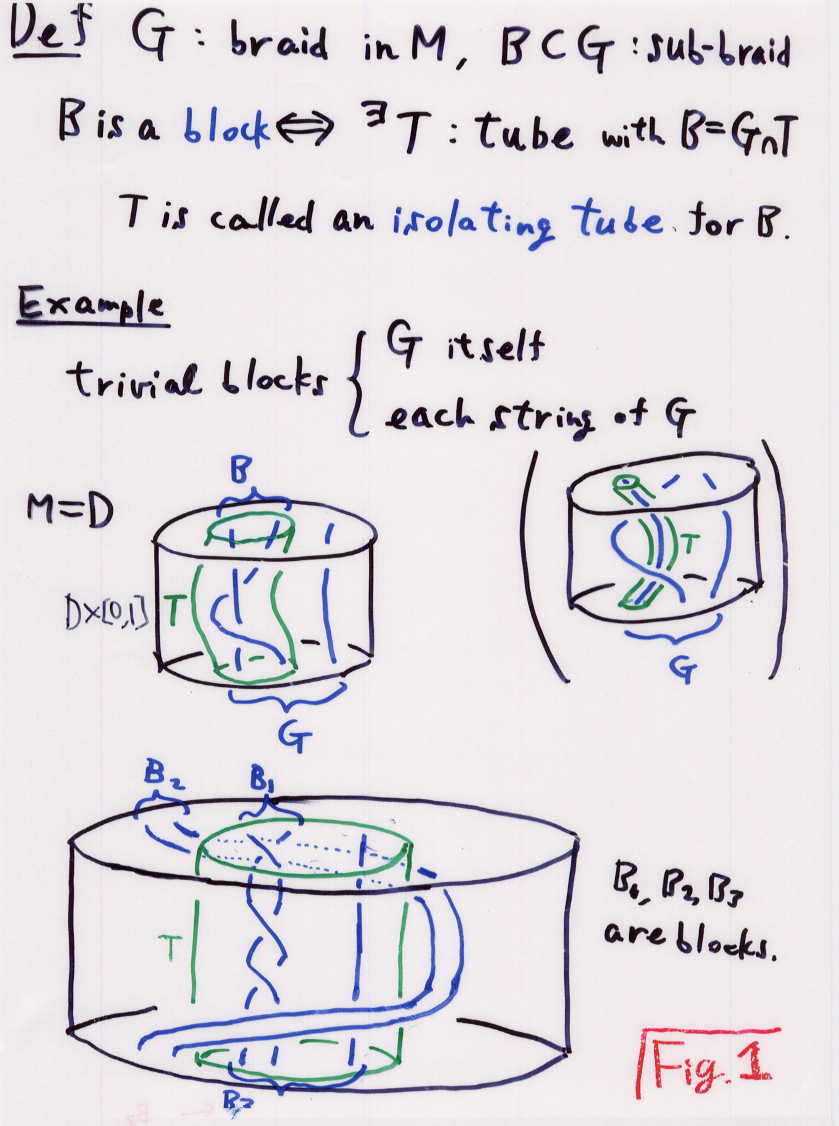 Def G : braid in M, B⊂G : sub-braid
B is a block ⇔ ∃T : tube with B=G∩T
T is called an isolating tube for B.
Example
trivial blocks { G itself
each string of G
B
M=D
D×[0,1]
T
G
T
G
B₂
B₁
T
B₁, B₂, B₃
are blocks.
Fig. 1